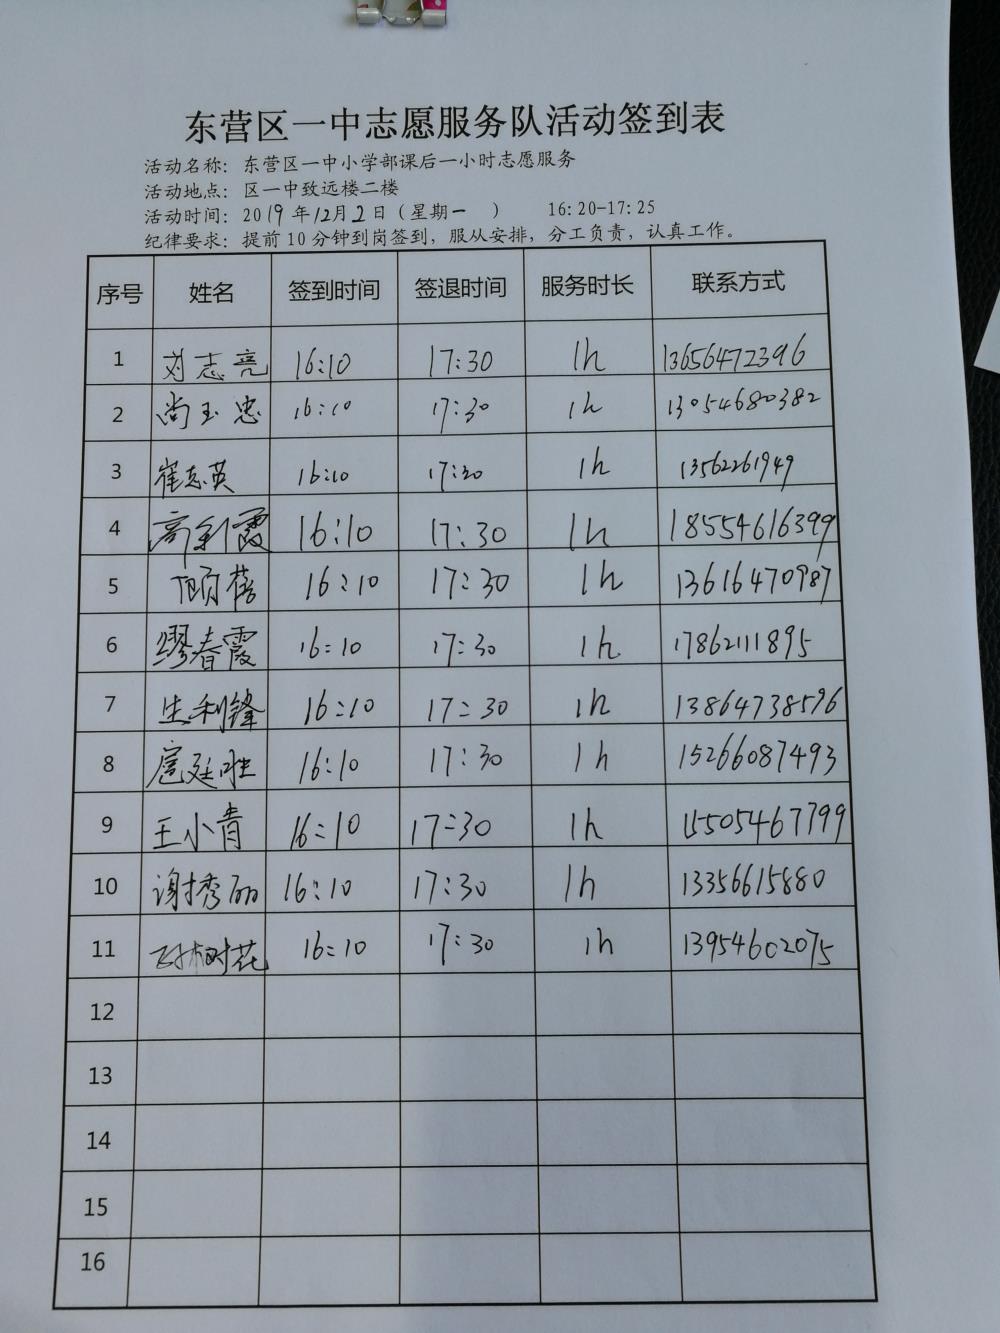 东营区一中志愿服务队活动签到表
活动名称：东营区一中小学部课后一小时志愿服务
活动地点：区一中致远楼二楼
活动时间：2019年12月2日（星期一 ） 16:20-17:25
纪律要求：提前10分钟到岗签到，服从安排，分工负责，认真工作。
序号 姓名 签到时间 签退时间 服务时长 联系方式
1 刘志亮 16:10 17:30 1h 13656472396
2 尚玉忠 16:10 17:30 1h 13054680382
3 崔志英 16:10 17:30 1h 13562261949
4 高利霞 16:10 17:30 1h 18554616399
5 顾蓓 16:10 17:30 1h 13616470987
6 缪春霞 16:10 17:30 1h 17862111895
7 生利锋 16:10 17:30 1h 13864738596
8 扈廷胜 16:10 17:30 1h 15266087493
9 王小青 16:10 17:30 1h 15505467799
10 谢秀丽 16:10 17:30 1h 13356615880
11 孙树花 16:10 17:30 1h 13954602075
12
13
14
15
16